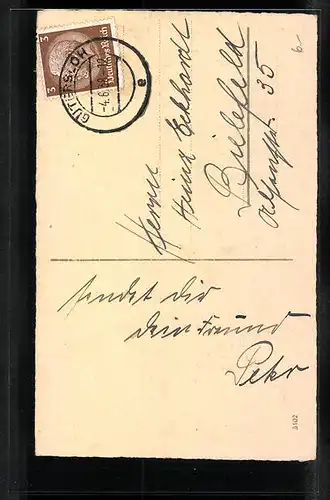 3 Deutsches Reich 3
GÜTERSLOH
-4.6.
e
b-
Herrn
Heinz Eckhardt
Bielefeld
35
sendet dir
dein Freund
Peter
5102